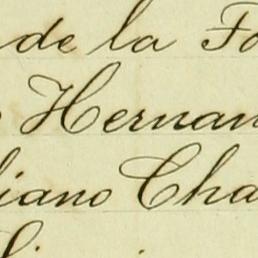 de la Fo
Hernan
iano Cha